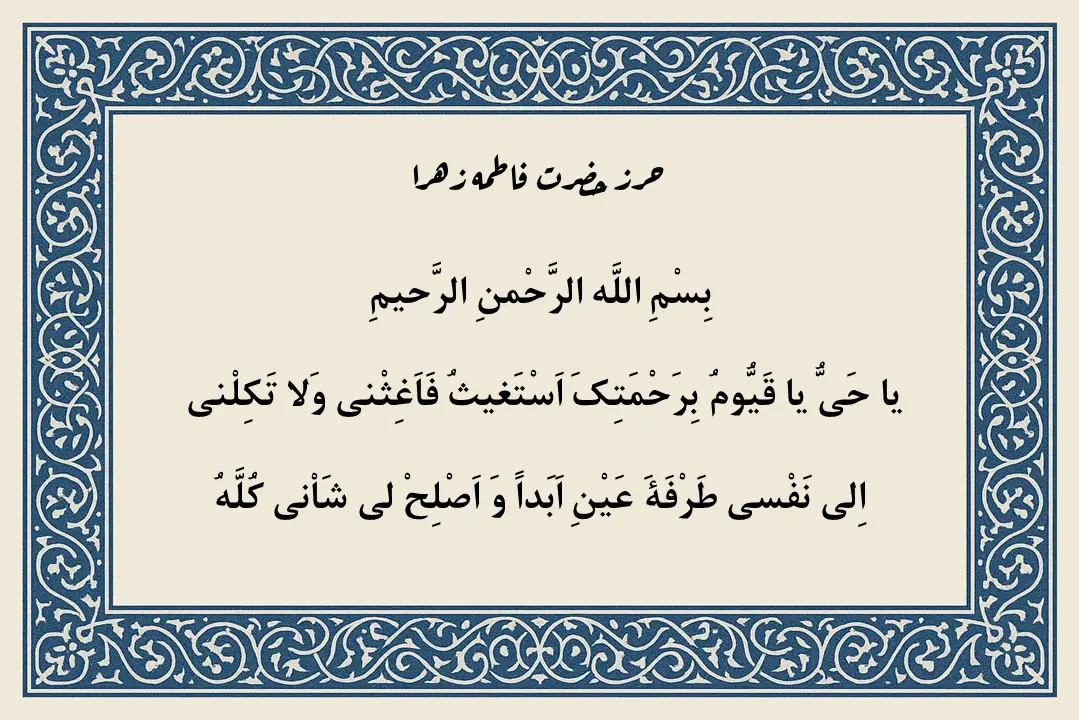 حرز حضرت فاطمه زهرا
بِسْمِ اللَّه الرَّحْمنِ الرَّحیمِ
یا حَیُّ یا قَیُّومُ بِرَحْمَتِکَ اَسْتَغیثُ فَاَغِثْنی وَلا تَکِلْنی
اِلی نَفْسی طَرْفَةَ عَیْنٍ اَبَداً وَ اَصْلِحْ لی شَاْنی کُلَّهُ